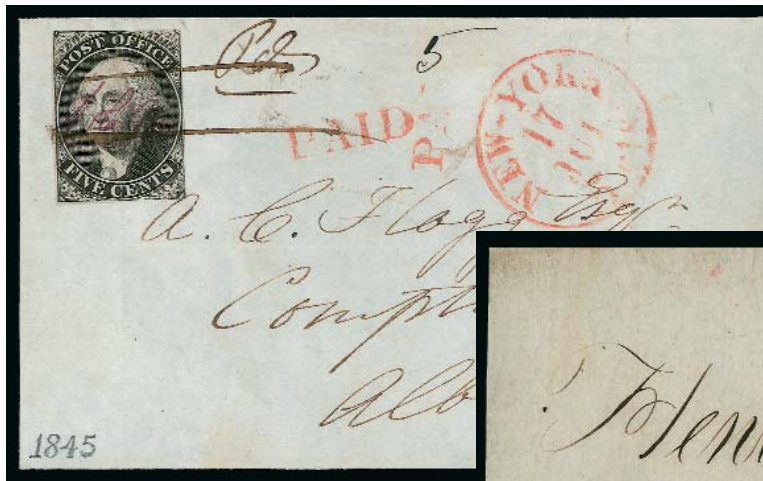 POST OFFICE
FIVE CENTS
Pd
5
PAID
PA
NEW-YORK
17
JUL
A. C. Flagg Esqr
Compt
Alb
1845
Hen